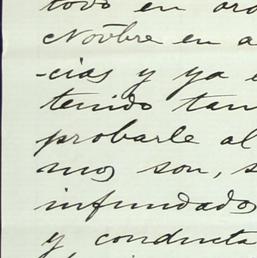 todo en ord
Novbre en a
-cias y ya e
tenido tan
probarle al
mos son, s
infundados
y conducta